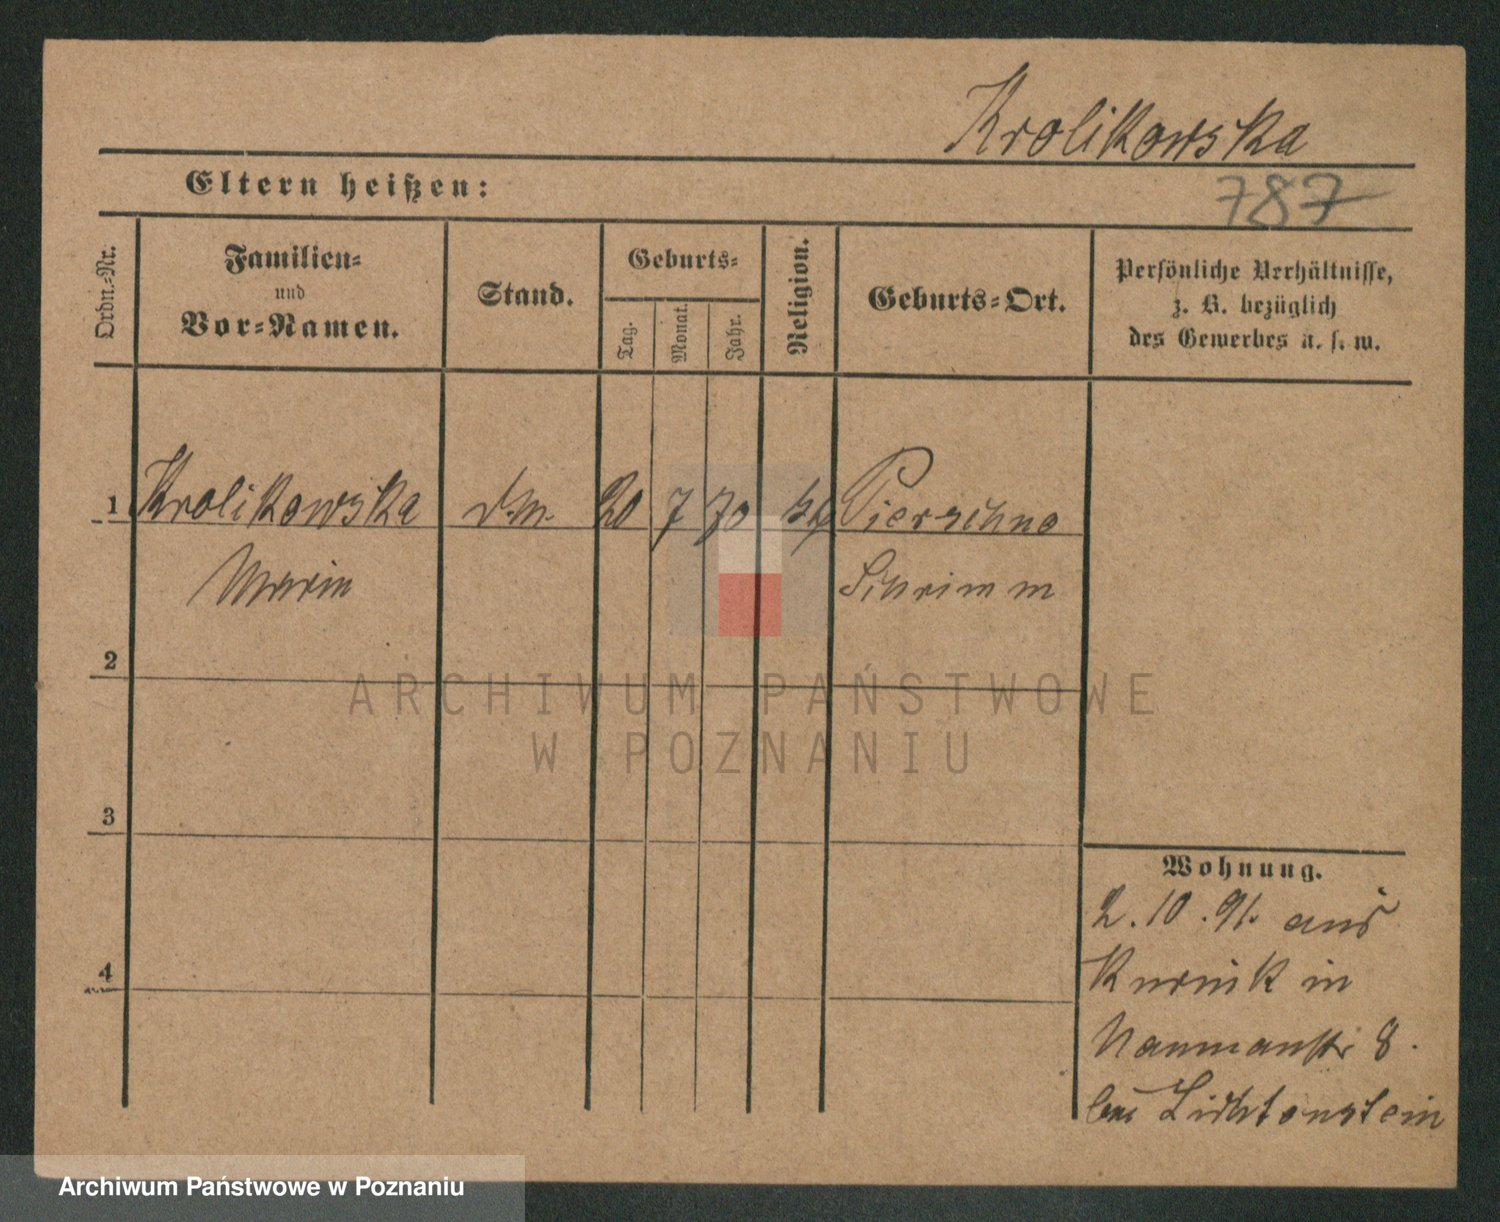 Krolikowska
Eltern heißen:
787
Ordn.-Nr.
Familien-
und
Vor-Namen.
Stand.
Geburts-
Tag.
Monat.
Jahr.
Religion.
Geburts-Ort.
Persönliche Verhältnisse,
z. B. bezüglich
des Gewerbes u. s. w.
1 Krolikowska 20 7 70 Pierschno
Maria Schrimm
2
ARCHIWUM PAŃSTWOWE
W POZNANIU
3
Wohnung.
2.10.91. aus
Kurnik in
4
Naumannstr 8.
bei Lichtenstein
Archiwum Państwowe w Poznaniu